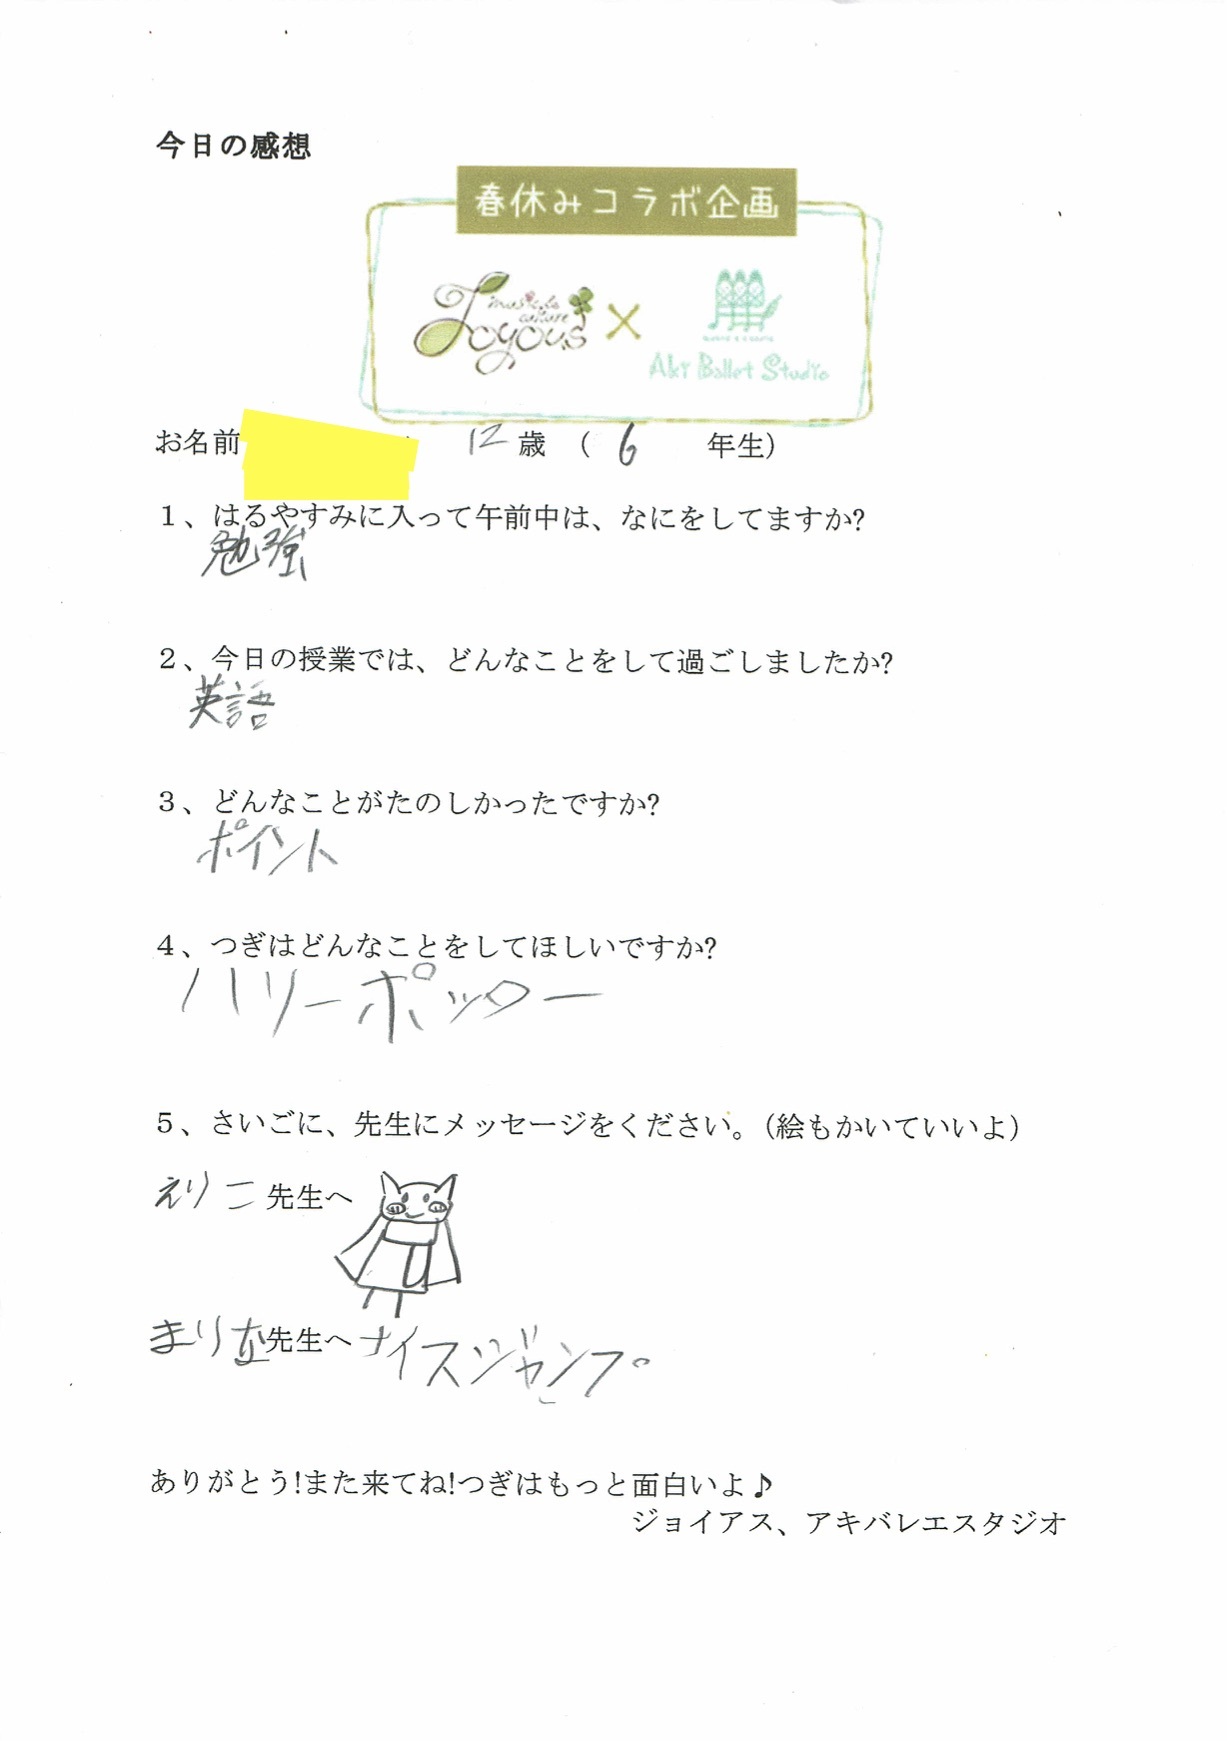 今日の感想
春休みコラボ企画
musics culture
Joyous × Aki Ballet Studio
お名前 12歳 ( 6 年生)
1、はるやすみに入って午前中は、なにをしてますか?
勉強
2、今日の授業では、どんなことをして過ごしましたか?
英語
3、どんなことがたのしかったですか?
ポイント
4、つぎはどんなことをしてほしいですか?
ハリーポッター
5、さいごに、先生にメッセージをください。(絵もかいていいよ)
えりこ先生へ
まりな先生へ ナイスジャンプ
ありがとう!また来てね!つぎはもっと面白いよ♪
ジョイアス、アキバレエスタジオ